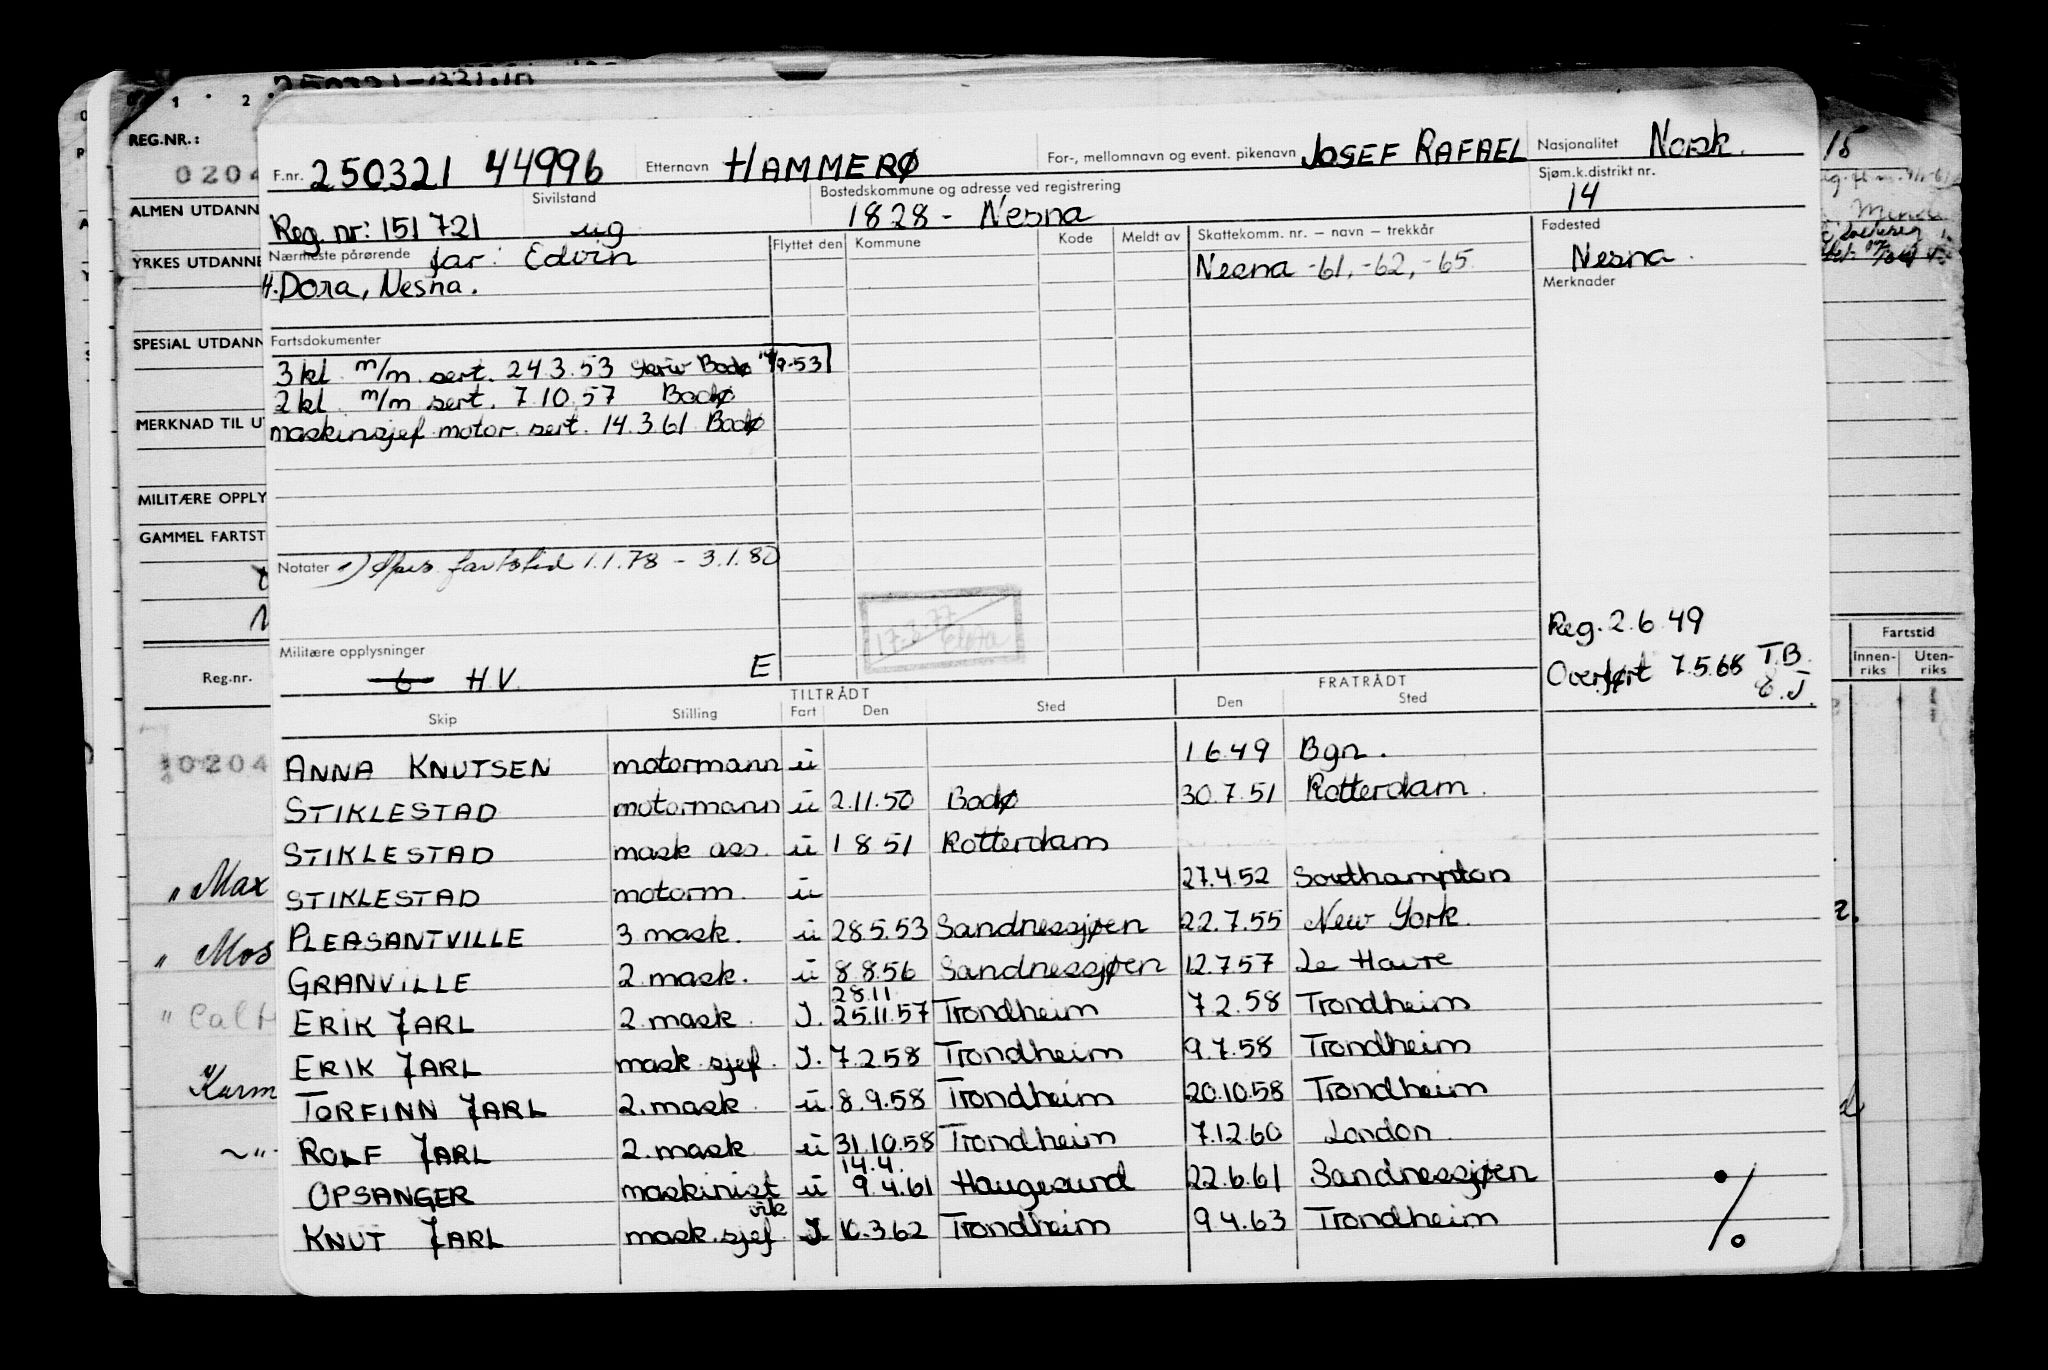 F.nr. 250321 44996 Etternavn HAMMERØ For-, mellomnavn og event. pikenavn JOSEF RAFAEL Nasjonalitet Norsk.
Reg. nr: 151721 Sivilstand ug Bostedskommune og adresse ved registrering 1828 - Nesna Sjøm.k.distrikt nr. 14
Nærmeste pårørende far: Edvin Flyttet den Kommune Kode Meldt av Skattekomm. nr. – navn – trekkår Fødested
H. Dora, Nesna. Nesna -61, -62, -65 Nesna.
Merknader
Fartsdokumenter
3 kl. m/m. sert. 24.3.53 Bodø
2 kl. m/m sert. 7.10.57 Bodø
maskinsjef motor. sert. 14.3.61 Bodø
Notater fartstid 1.1.78 - 3.1.80
Reg. 2.6.49
Militære opplysninger
6 H.V. E
Overført 7.5.65 T.B.
TILTRÅDT FRATRÅDT
Skip Stilling Fart Den Sted Den Sted
ANNA KNUTSEN motormann u 1.6.49 Bgn.
STIKLESTAD motormann u 2.11.50 Bodø 30.7.51 Rotterdam.
STIKLESTAD mask ass. u 1 8 51 Rotterdam
STIKLESTAD motorm. u 27.4.52 Southampton
PLEASANTVILLE 3 mask. u 28.5.53 Sandnessjøen 22.7.55 New York.
GRANVILLE 2. mask. u 8.8.56 Sandnessjøen 12.7.57 Le Havre
28.11
ERIK JARL 2. mask. I. 25.11.57 Trondheim 7.2.58 Trondheim
ERIK JARL mask. sjef. I. 7.2.58 Trondheim 9.7.58 Trondheim
TORFINN JARL 2. mask. u. 8.9.58 Trondheim 20.10.58 Trondheim
ROLF JARL 2. mask. u 31.10.58 Trondheim 7.12.60 London.
14.4.
OPSANGER maskinist u 9.4.61 Haugesund 22.6.61 Sandnessjøen
vik
KNUT JARL mask. sjef. I 10.3.62 Trondheim 9 4.63 Trondheim
REG.NR.:
0204
ALMEN UTDANN
YRKES UTDANNE
SPESIAL UTDANN
MERKNAD TIL U
MILITÆRE OPPLY
GAMMEL FARTST
Reg.nr.
10204
" Max
" Mos
Karm
Fartstid
Innen-riks Uten-riks